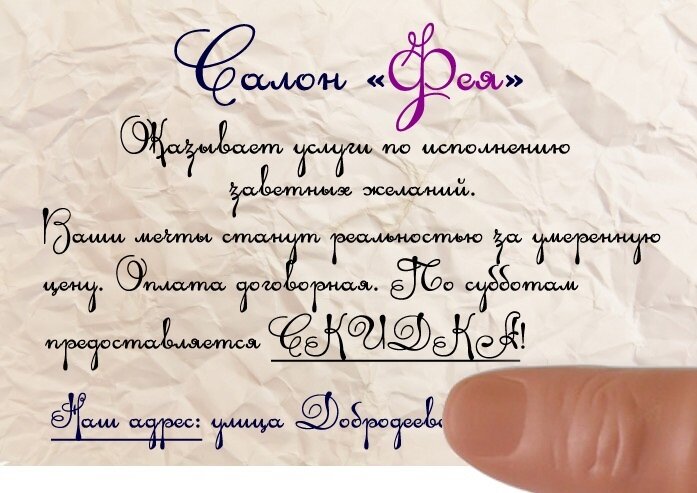 Салон «Фея»
Оказывает услуги по исполнению
заветных желаний.
Ваши мечты станут реальностью за умеренную
цену. Оплата договорная. По субботам
предоставляется СКИДКА!
Наш адрес: улица Добродеев